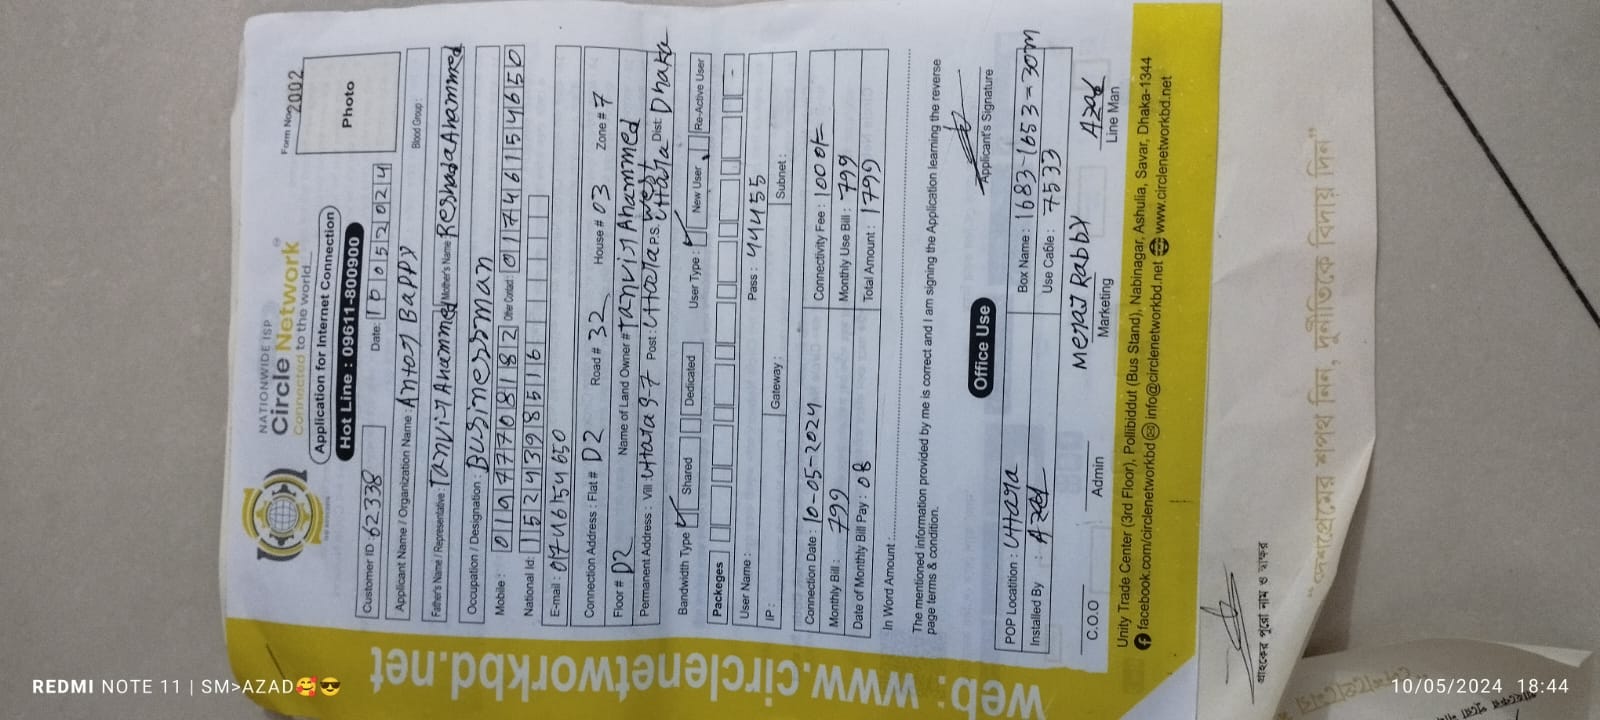 NATIONWIDE ISP
Circle Network
Connected to the world
Application for Internet Connection
Hot Line : 09611-800900
Form No: 2002
Photo
Customer ID : 62338
Date: 10 05 2024
Applicant Name / Organization Name : Antor Bappy
Blood Group :
Father's Name / Representative : Tanvir Ahammed Mother's Name Reshada Ahammed
Occupation / Designation : Businessman
Mobile : 01947708182 Other Contact : 01746154650
National Id: 1524398516
E-mail : 01746154650
Connection Address : Flat # D2 Road # 32 House # 03 Zone # 7
Floor # D2 Name of Land Owner # Tanvir Ahammed
Permanent Address : Vill : Uttara 9-7 Post : Uttara P.S. Uttara West Dist: Dhaka
Bandwidth Type : Shared Dedicated User Type : New User Re-Active User
Packeges
User Name : Pass : 44455
IP : Gateway : Subnet :
Connection Date : 10-05-2024 Connectivity Fee : 1000/=
Monthly Bill : 799 Monthly Use Bill : 799
Date of Monthly Bill Pay : 08 Total Amount : 1799
In Word Amount :
The mentioned information provided by me is correct and I am signing the Application learning the reverse
page terms & condition.
Applicant's Signature
Office Use
POP Locatition : Uttara Box Name : 1683-1653=30m
Installed By : Azad Use Cable : 7533
Meraj Rabby Azad
C.O.O Admin Marketing Line Man
Unity Trade Center (3rd Floor), Pollibiddut (Bus Stand), Nabinagar, Ashulia, Savar, Dhaka-1344
facebook.com/circlenetworkbd info@circlenetworkbd.net www.circlenetworkbd.net
web: www.circlenetworkbd.net
গ্রাহকের পুরো নাম ও স্বাক্ষর
"দেশপ্রেমের শপথ নিন, দুর্নীতিকে বিদায় দিন"
REDMI NOTE 11 | SM>AZAD🥰😎
10/05/2024 18:44